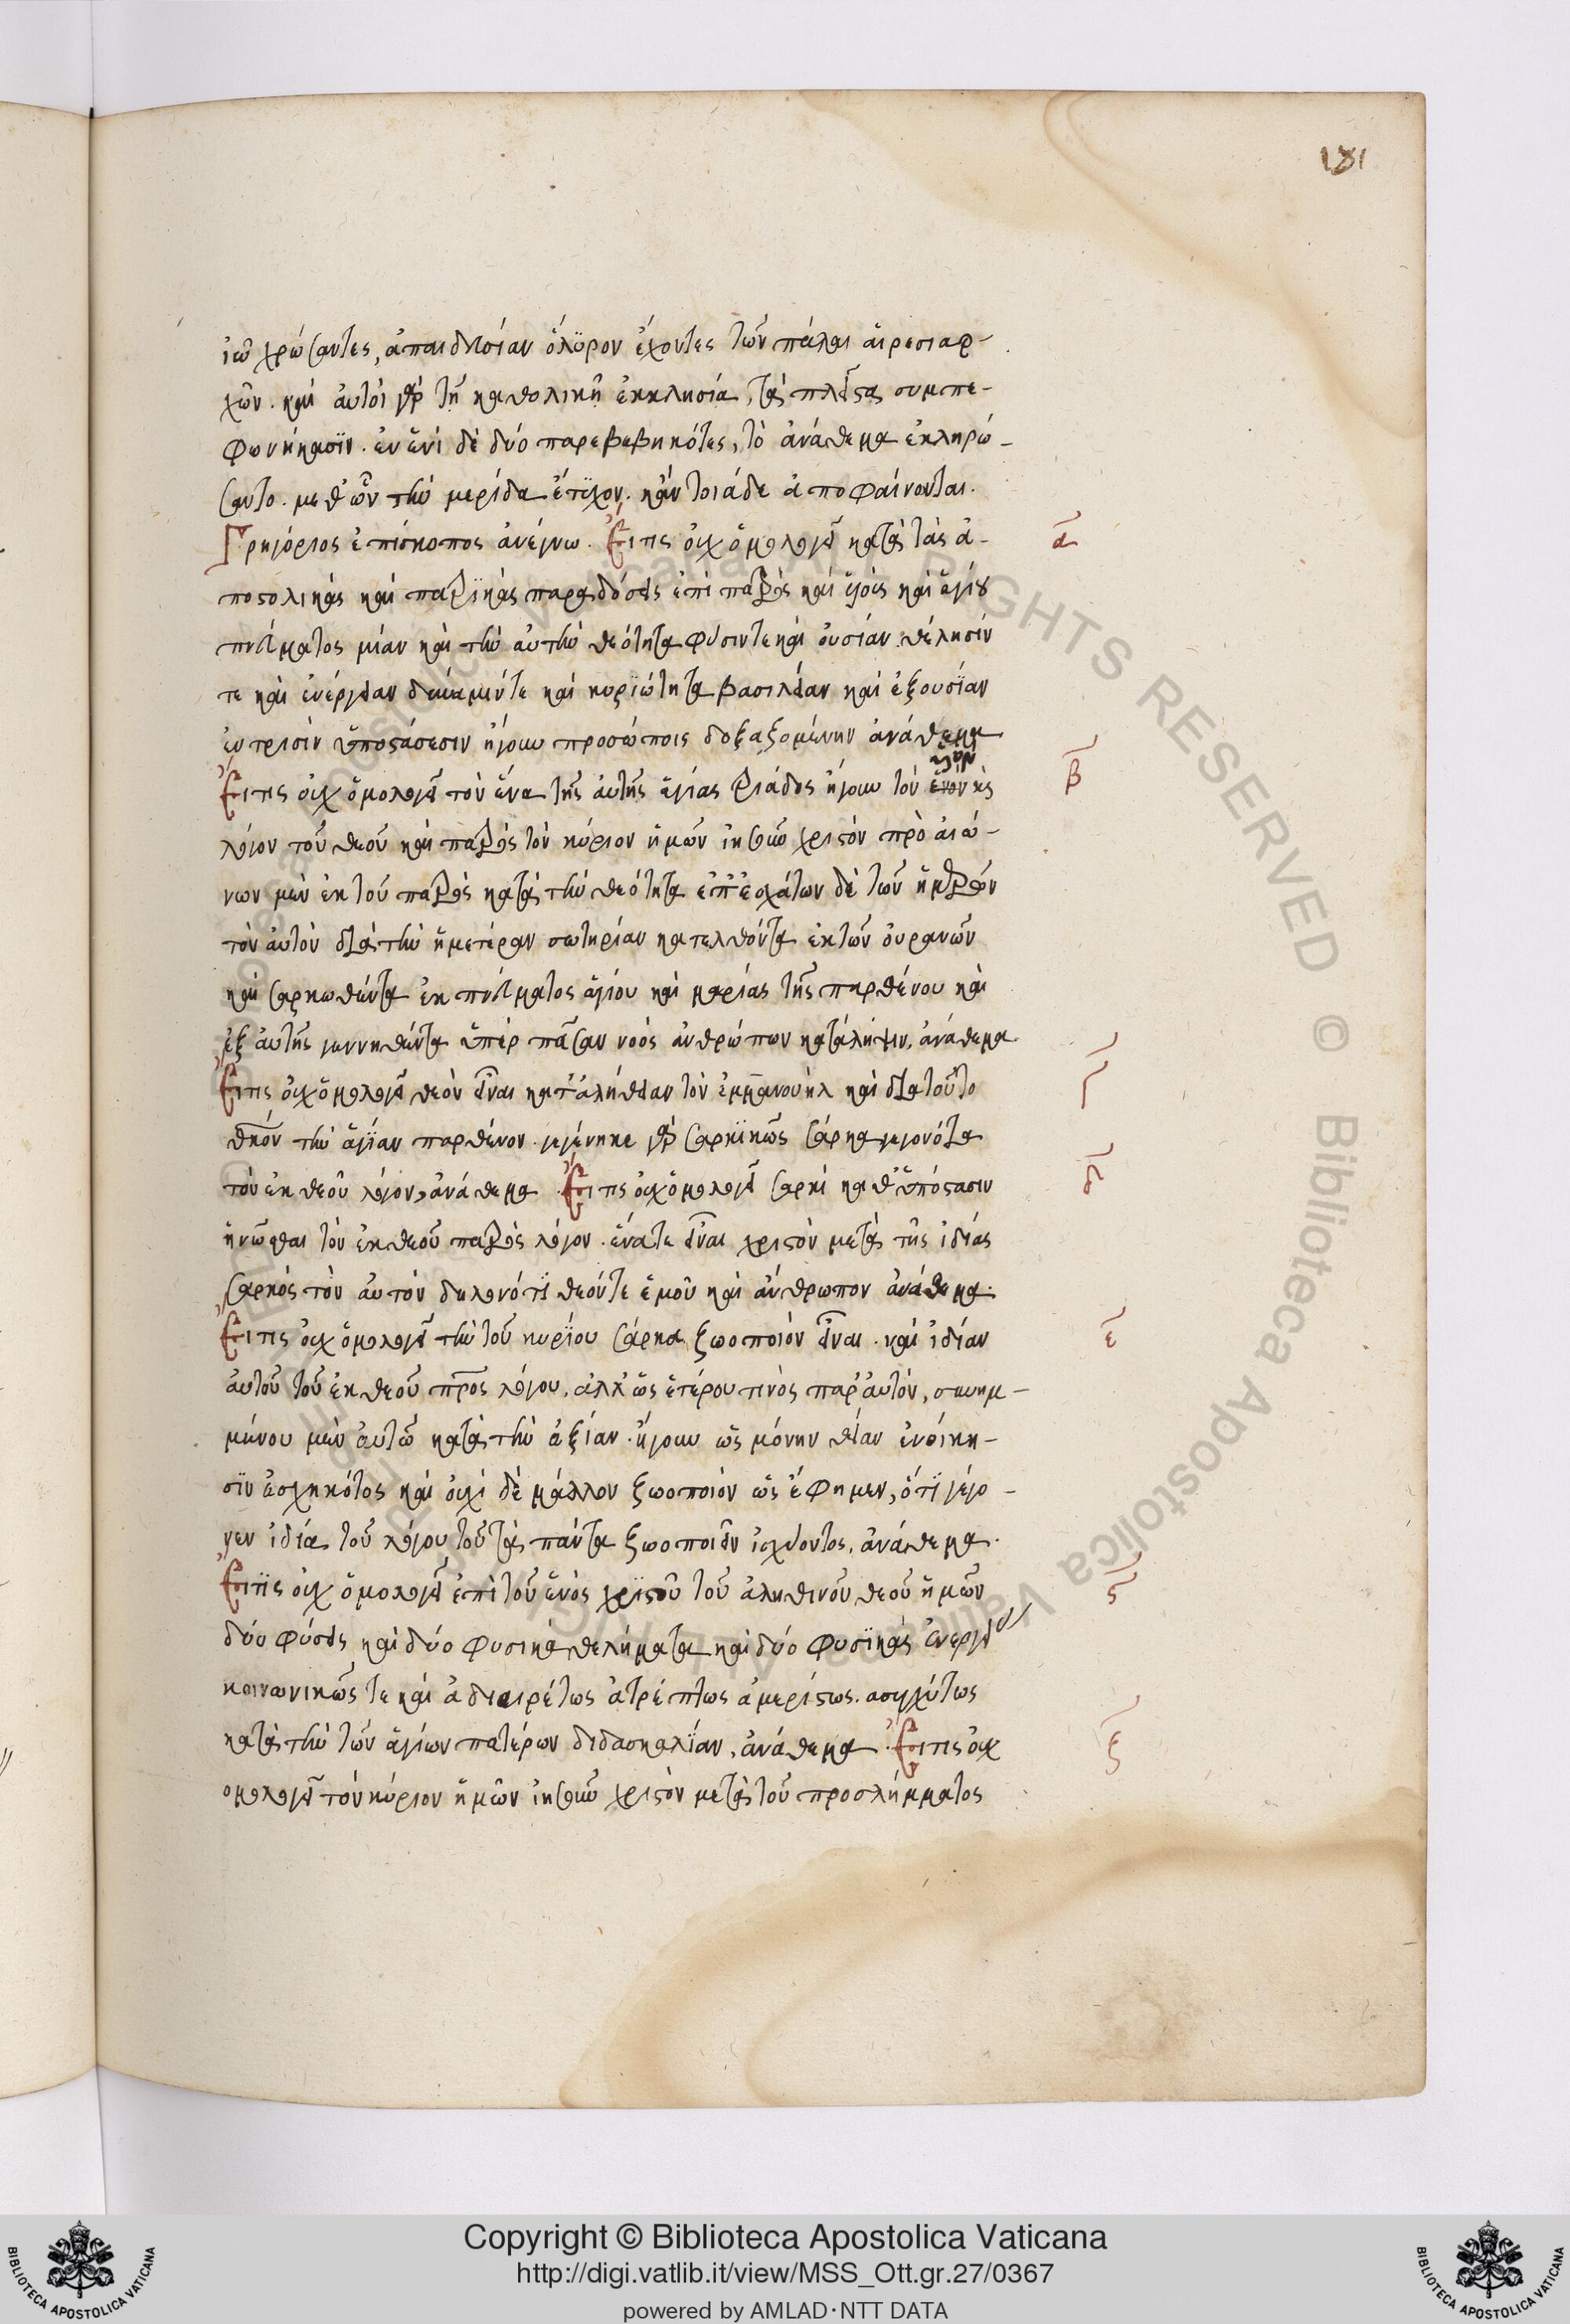 181
ἰῷ χρώσαντες, ἀπαιδευσίαν ὅλϋρον ἔχοντες τῶν πάλαι αἱρεσιαρ-
χῶν. καὶ αὐτοὶ γὰρ τῇ καθολικῇ ἐκκλησίᾳ, τὰ πλεῖστα συμπε-
φωνήκασϊν. ἐν ἑνὶ δὲ δύο παρεβεβηκότες, τὸ ἀνάθεμα ἐκληρώ-
σαντο. μεθ' ὧν τὴν μερίδα ἔτϋχον. κἂν τοιάδε ἀποφαίνονται.
Γρηγόριος ἐπίσκοπος ἀνέγνω. Εἴ τις οὐχ ὁμολογεῖ κατὰ τὰς ἀ- α
ποστολικὰς καὶ πατρϊκὰς παραδόσεις ἐπὶ πατρὸς καὶ υἱοῦ καὶ ἁγίου
πνεύματος μίαν καὶ τὴν αὐτὴν θεότητα φύσιν τε καὶ οὐσίαν θέλησίν
τε καὶ ἐνέργειαν δύναμίν τε καὶ κυρϊότητα βασιλείαν καὶ ἐξουσϊαν
ἐν τρισὶν ὑποστάσεσιν ἤγουν προσώποις δοξαζομένην ἀνάθεμα
Εἴ τις οὐχ ὁμολογεῖ τὸν ἕνα τῆς αὐτῆς ἁγίας τριάδος ἤγουν τὸν υἱὸν καὶ β
λόγον τοῦ θεοῦ καὶ πατρὸς τὸν κύριον ἡμῶν ἰησοῦν χριστὸν πρὸ αἰώ-
νων μὲν ἐκ τοῦ πατρὸς κατὰ τὴν θεότητα ἐπ' ἐσχάτων δὲ τῶν ἡμερῶν
τὸν αὐτὸν διὰ τὴν ἡμετέραν σωτηρίαν κατελθόντα ἐκ τῶν οὐρανῶν
καὶ σαρκωθέντα ἐκ πνεύματος ἁγίου καὶ μαρίας τῆς παρθένου καὶ
ἐξ αὐτῆς γεννηθέντα ὑπὲρ πᾶσαν νοὸς ἀνθρώπων κατάληψιν, ἀνάθεμα.
Εἴ τις οὐχ ὁμολογεῖ θεὸν εἶναι κατ' ἀλήθειαν τὸν ἐμμανουὴλ καὶ διὰ τοῦτο γ
θκόν τὴν ἁγϊαν παρθένον. γεγέννηκε γὰρ σαρκϊκῶς σάρκα γεγονότα
τὸν ἐκ θεοῦ λόγον, ἀνάθεμα. Εἴ τις οὐχ ὁμολογεῖ σαρκὶ καθ' ὑπόστασιν δ
ἡνῶσθαι τὸν ἐκ θεοῦ πατρὸς λόγον. ἕνα τε εἶναι χριστὸν μετὰ τῆς ἰδίας
σαρκὸς τὸν αὐτὸν δηλονότϊ θεόν τε ὁμοῦ καὶ ἄνθρωπον ἀνάθεμα.
Εἴ τις οὐχ ὁμολογεῖ τὴν τοῦ κυρϊου σάρκα ζωοποιὸν εἶναι. καὶ ἰδίαν ε
αὐτοῦ τοῦ ἐκ θεοῦ προς λόγου. ἀλλ' ὡς ἑτέρου τινὸς παρ' αὐτὸν, συνημ-
μένου μὲν αὐτῷ κατὰ τὴν ἀξίαν. ἤγουν ὡς μόνην θείαν ἐνοίκη-
σϊν ἐσχηκότος καὶ οὐχὶ δὲ μᾶλλον ζωοποιὸν ὡς ἔφημεν, ὅτϊ γέγο-
νεν ἰδία τοῦ λόγου τοῦ τὰ πάντα ζωοποιεῖν ἰσχύοντος, ἀνάθεμα.
Εἴ τϊς οὐχ ὁμολογεῖ ἐπὶ τοῦ ἑνὸς χρϊστοῦ τοῦ ἀληθινοῦ θεοῦ ἡμῶν ς
δύο φύσεις καὶ δύο φυσικὰ θελήματα καὶ δύο φυσϊκὰς ἐνεργείας
κοινωνικῶς τε καὶ ἀδιαιρέτως ἀτρέπτως ἀμερίστως. ἀσυγχύτως
κατὰ τὴν τῶν ἁγίων πατέρων διδασκαλϊαν, ἀνάθεμα. Εἴ τις οὐχ ζ
ομολογεῖ τὸν κύριον ἡμῶν ἰησοῦν χριστὸν μετὰ τοῦ προσλήμματος
Copyright © Biblioteca Apostolica Vaticana
http://digi.vatlib.it/view/MSS_Ott.gr.27/0367
powered by AMLAD·NTT DATA